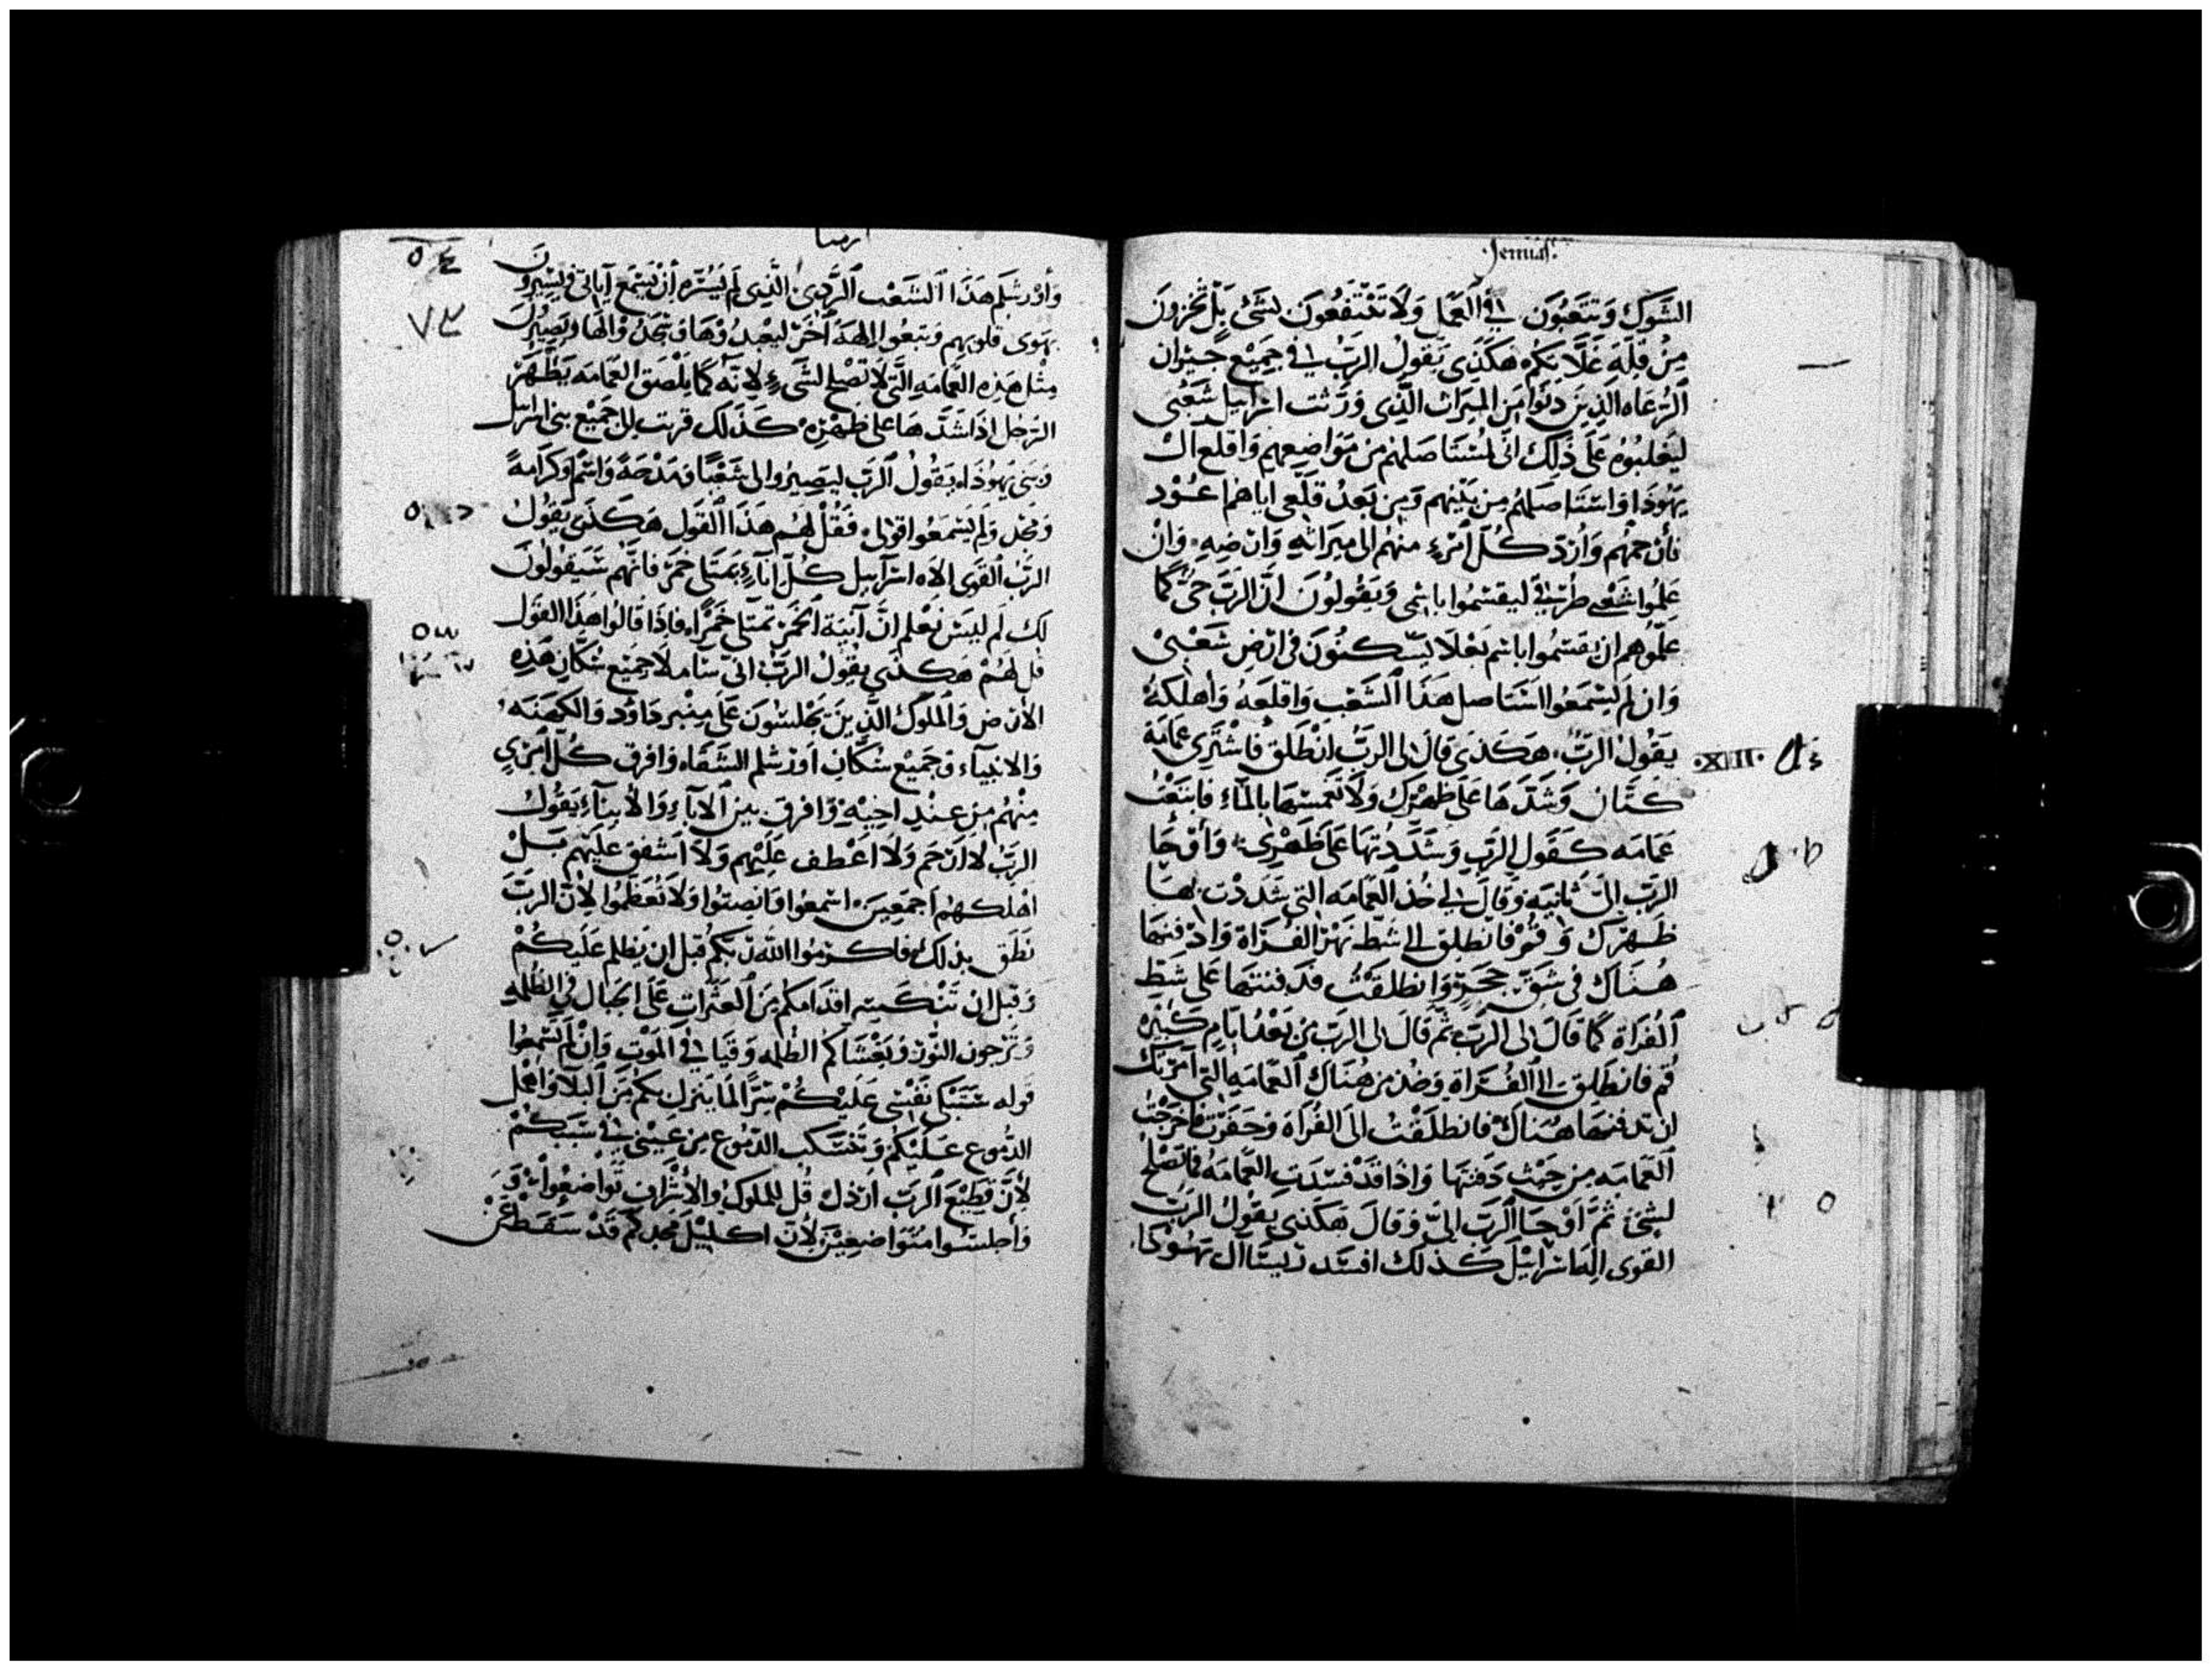 Jeremias.
الشَوك وَتتعَبُون في العَمل وَلَا تنتفعُون بشئ بَل تخزون
مِن قِلَة غَلَّاتكم هَكَذَي يَقولُ الرَبُ في جَمِيع جيران
الرُعَاه الذِينَ دنَوا مِن الميرَاث الَّذِي وَرَثت اسراييل شَعْبي
ليَغلبُوه عَلَى ذَلِك اني استَاصلهُم مِن مَوَاضِعهم وَاقلع ال
يَهُوذا وَاستَاصَلهُم مِن بَينهم وَمِن بَعد قلعي اياهم اعُوْد
فارحمهُم وَاردّ كُل امرءٍ منهُم الى ميراثهِ وَارضِهِ وَان
عَلِمُوا شَعْبي طرقي ليقسمُوا باسْمي وَيَقُولُونَ انَّ الرَبَ حَيّ كَمَا
عَلّمُوهم ان يقسمُوا باسم بَعْلَا يسكنُونَ في ارْض شَعْبي
وَان لَم يسْمَعُوا استَاصل هَذَا الشَعْب وَاقلعَهُ وَاهلكهُ
يَقولُ الرَبُ هَكَذَي قالَ لى الرَبُ انْطَلق فاشتري عمامَة
XIII.
كتَّان وَشَدَّهَا عَلَى ظهْرك وَلَا تَغمسْهَا بالمَّاء فابتَعْتُ
عَمَامَه كقَول الرَبِ وَشدَدتهَا عَلى ظَهْري وَأوْحَا
الرَبُ اليّ ثَانيَه وَقالَ لي خُذ العَمَامَه التي شَدَدْت بهَا
ظَهرك وَقُمْ فانطلق الى شطّ نَهْر الفرَاة وَادْفنهَا
هُنَاك فى شَقّ حجَرٍ وَانطلقتُ فدَفنتهَا عَلى شطِّ
الفُرَاة كَمَا قالَ لى الرَبُ ثمَّ قَالَ لى الرَبُ مِن بَعْد ايَّامٍ كَثيره
قُم فانطَلِق الى الفُرَاة وَخُذ من هُنَاك العَمَامَه التي امرتك
ان تدفنهَا هُنَاك فانطَلقتُ الى الفُرَاه وَحَفَرْت وَاخرَجْت
العَمَامَه مِن حَيْث دَفنتهَا وَاذا قَدْ فسَدَتِ العَمَامَه فَمَا تَصْلح
لشئ ثمَّ اوْحَا الرَبُ اليّ وَقالَ هَكَذي يَقولُ الرَبُ
القوى اله اسْراييْل كَذلك افسد ريسا ال يَهُوذا
ارميا
وَأورشلم هَذَا الشَعْب الرَدِئ الَّذِي لَم يَسُرّه أن يَسْمَع آياتي وَيَسِيرُون
٧٣
بهَوى قلوبهم وَتبعُوا الِهَة أخَرْ ليعْبدُوْهَا وَسجدُوا لَهَا وَيَصِيرُونَ
مثْل هَذِه العمَامَه الَّتي لَا تصْلح لشَئ لانَّه كَمَا يلصَق العمامَه بظَهر
الرَجُل اذا شدَّهَا على ظهره كَذلك قربت إلي جَميْع بني اسراييل
وَبَني يَهُوذَاه يَقولُ الرَب ليَصِيرُوا لي شَعْبًا وَمدْحَةً وَاسْمً وَكَرَامةً
وَمَجْد وَلم يَسْمَعُوا قولي فَقُلْ لهُم هَذا القَول هَكَذي يَقُولُ
الرَبُ القَوي الِاه اسْراييل كُلّ اناءٍ يَمتَلي خمرْ فانَّهم سَيَقُولُونَ
لك لم ليسَ نَعْلم انَّ آنيَة الخَمرْ تمتَلي خَمرًا فاذَا قالوا هذا القَول
قُل لهُمْ هَكَذَي يقُولُ الرَبُ اني سَاملا جَميع سُكَّان هَذِه
الارْض وَالملُوك الَّذِينَ يَجْلسُونَ عَلَى مِنْبر دَاوُد وَالكهَنَه
وَالانبيَاء وَجَميْع سُكَّان اورشلم الشقَاء وَافرق كُلّ امْري
مِنْهُم مِن عِنْد اخِيْه وَافرق بين الآباءِ وَالأبنآءِ يَقُولُ
الرَبُ لا ارْحَم وَلَا اعْطف عَلَيْهم وَلَا اشفق عَلَيهم بَلْ
اهْلكهُم اجمَعِين اسْمعُوا وَانصتُوا وَلَا تَعَظمُوا لأنّ الرَبَ
نَطق بذلك فاكرمُوا الله رَبّكم قَبل ان يَظلم عَلَيْكُمْ
وَقبل ان تَنْكسِر اقدَامكم مِنَ العَثَرَاتِ عَلَى الجبَال في الظُلمه
وَترْجون النُّوْر وَيَغْشَاكم الظُلمه وَقيَامٌ في المَوْت وَانْ لَم تسْمعُوا
قوله سَتَبْكي نَفْسي عَلَيْكُمْ سِرًّا لما يَنزل بكم مِنَ البَلَا وَاهْمل
الدُموع عَلَيْكُمْ وَتنْسَكب الدُمُوع مِن عَيْني في سَبَبكُمْ
لأنَّ قطِيْعَ الرَبِ ارذل قُل للملوك وَالأشْراف تَوَاضعُوا
وَأجلسُوا مُتَوَاضِعِيْنَ لأنّ اكليْل مَجْدكم قَدْ سَقط عَن